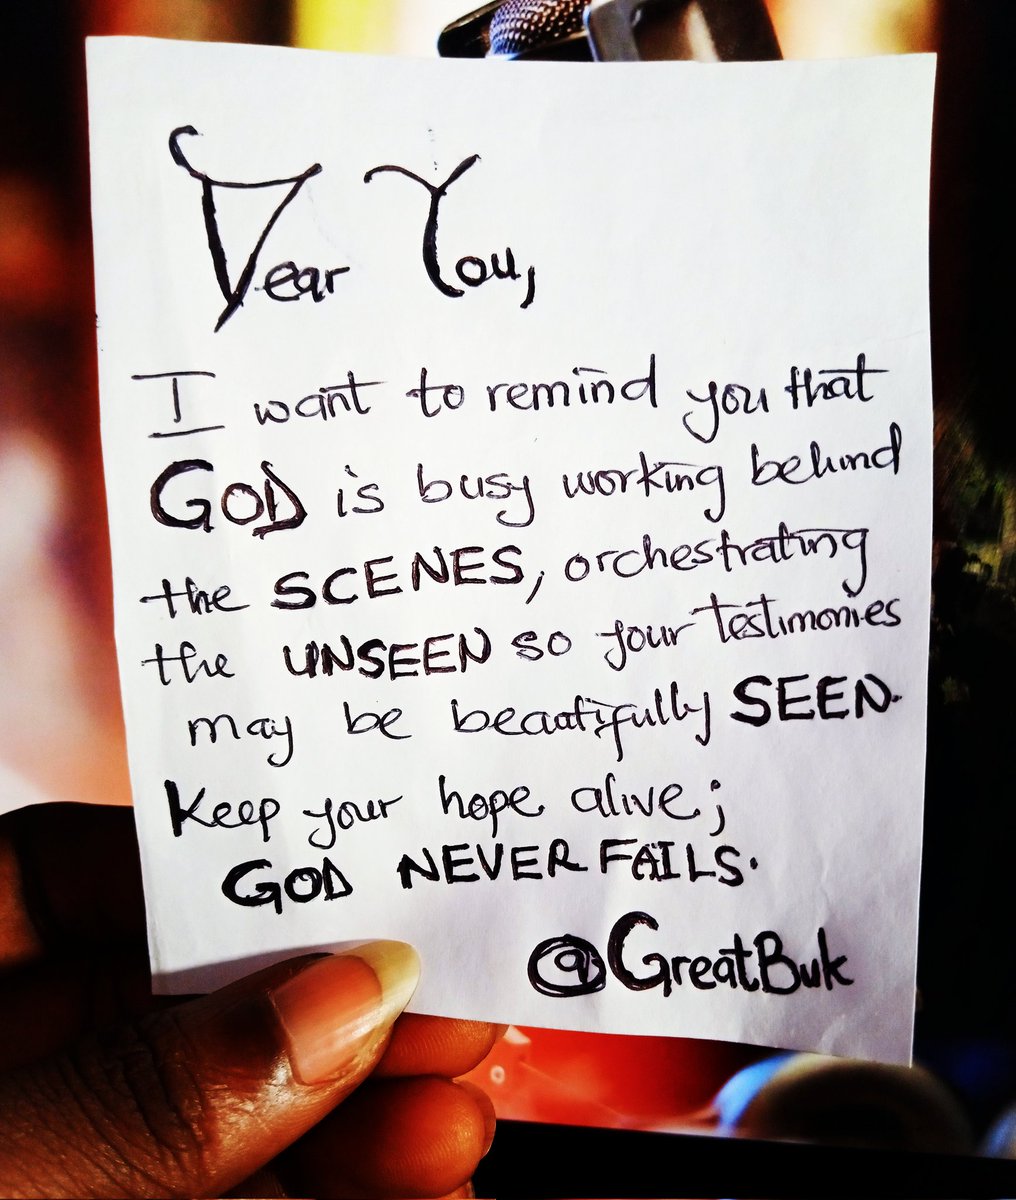 Dear You,
I want to remind you that
GOD is busy working behind
the SCENES, orchestrating
the UNSEEN so your testimonies
may be beautifully SEEN.
Keep your hope alive;
GOD NEVER FAILS.
@GreatBuk